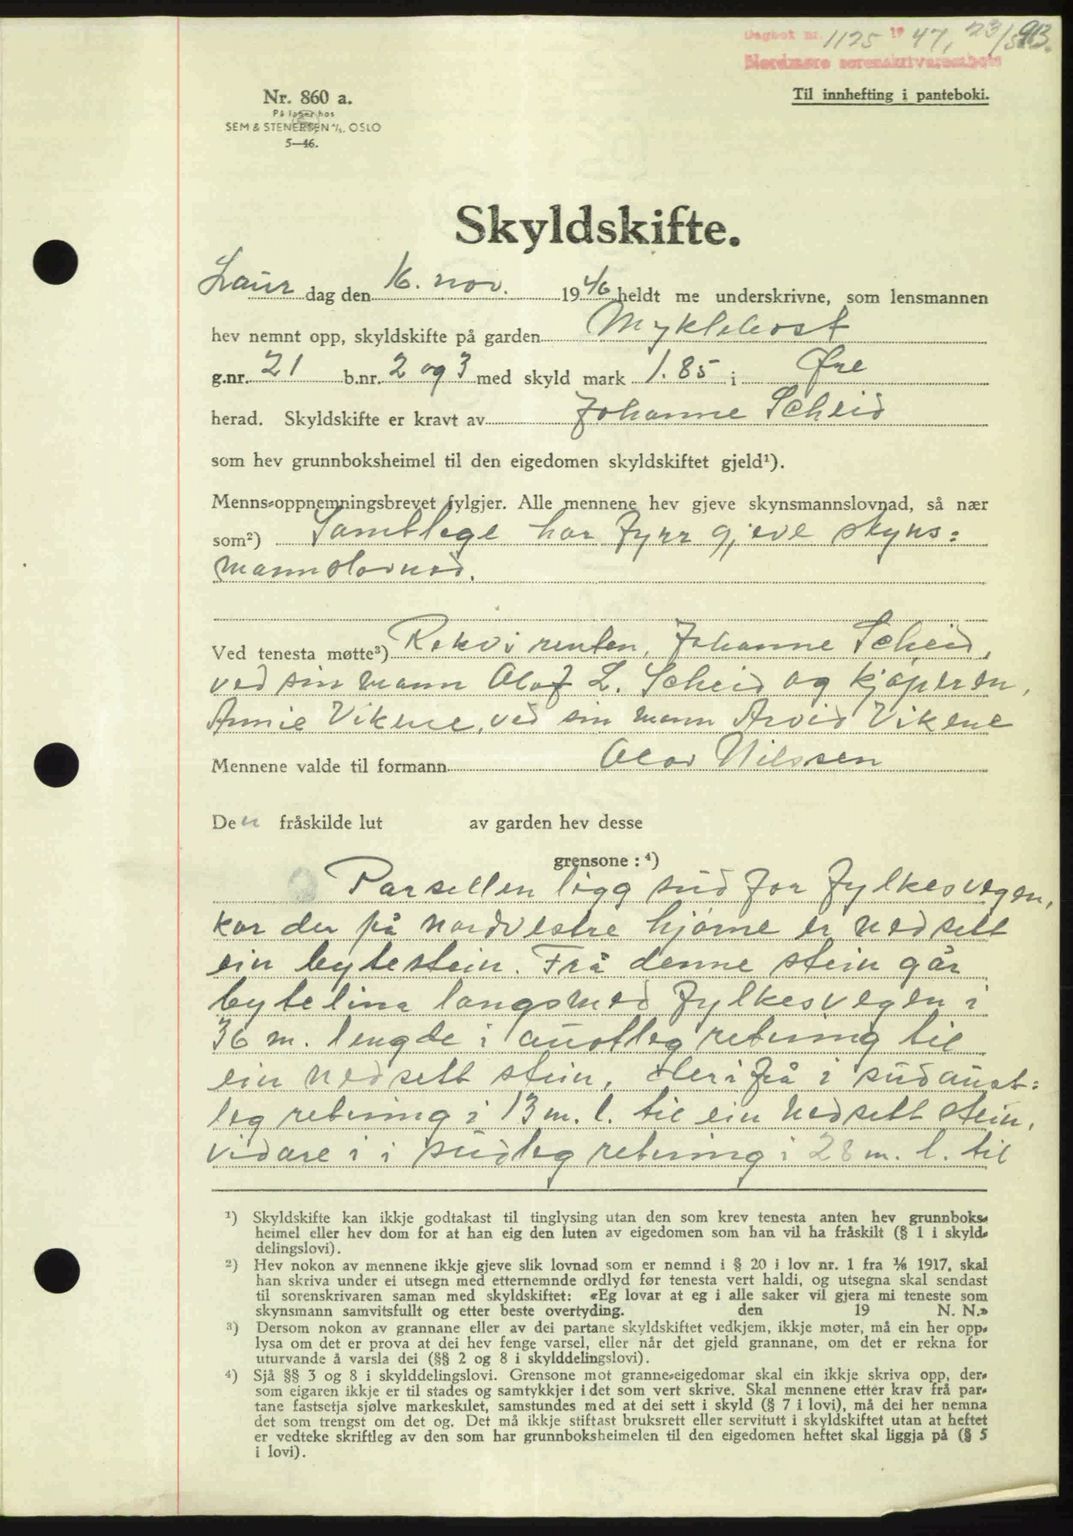 Dagbok nr. 1125 19 47, 23/5 913.
Nordmøre sorenskrivarembete
Nr. 860 a.
På lager hos
SEM & STENERSEN A/S, OSLO
5—46.
Til innhefting i panteboki.
Skyldskifte.
Laur dag den 16. nov. 1946 heldt me underskrivne, som lensmannen
hev nemnt opp, skyldskifte på garden Myklebost
g.nr. 21 b.nr. 2 og 3 med skyld mark 1.85 i Øre
herad. Skyldskifte er kravt av Johanne Scheid
som hev grunnboksheimel til den eigedomen skyldskiftet gjeld¹).
Menns-oppnemningsbrevet fylgjer. Alle mennene hev gjeve skynsmannslovnad, så nær
som²) Samtlege har fyrr gjeve skyns=
mannslovnad.
Ved tenesta møtte³) Rekvirenten, Johanne Scheid,
ved sin mann Olaf L. Scheid og kjøperen,
Annie Vikene, ved sin mann Arvid Vikene
Mennene valde til formann Olav Nilssen
Den fråskilde lut av garden hev desse
grensone : ⁴)
Parsellen ligg sud for fylkesvegen,
kor der på nordvestre hjørne er nedsett
ein bytestein. Frå denne stein går
bytelina langsmed fylkesvegen i
36 m. lengde i austleg retning til
ein nedsett stein, derifrå i sudaust=
leg retning i 13 m. l. til ein nedsett stein,
vidare i i sudleg retning i 28 m. l. til
¹) Skyldskifte kan ikkje godtakast til tinglysing utan den som krev tenesta anten hev grunnboks-
heimel eller hev dom for at han eig den luten av eigedomen som han vil ha fråskilt (§ 1 i skyld-
delingslovi).
²) Hev nokon av mennene ikkje gjeve slik lovnad som er nemnd i § 20 i lov nr. 1 fra 1/6 1917, skal
han skriva under ei utsegn med etternemnde ordlyd før tenesta vert haldi, og utsegna skal sendast
til sorenskrivaren saman med skyldskiftet: «Eg lovar at eg i alle saker vil gjera mi teneste som
skynsmann samvitsfullt og etter beste overtyding. den 19 N. N.»
³) Dersom nokon av grannane eller av dei partane skyldskiftet vedkjem, ikkje møter, må ein her opp-
lysa om det er prova at dei hev fenge varsel, eller når det gjeld grannane, om det er rekna for
uturvande å varsla dei (§§ 2 og 8 i skylddelingslovi).
⁴) Sjå §§ 3 og 8 i skylddelingslovi. Grensone mot granne-eigedomar skal ein ikkje skriva opp, der-
som eigaren ikkje er til stades og samtykkjer i det som vert skrive. Skal mennene etter krav frå par-
tane fastsetja sjølve markeskilet, samstundes med at dei sett i skyld (§ 7 i lovi), må dei her nemna
det som trengst om det og. Det må ikkje stiftast bruksrett eller servitutt i skyldskiftet utan at heftet
er vedteke skriftleg av den som har grunnboksheimelen til den eigedomen heftet skal liggja på (§ 5
i lovi).